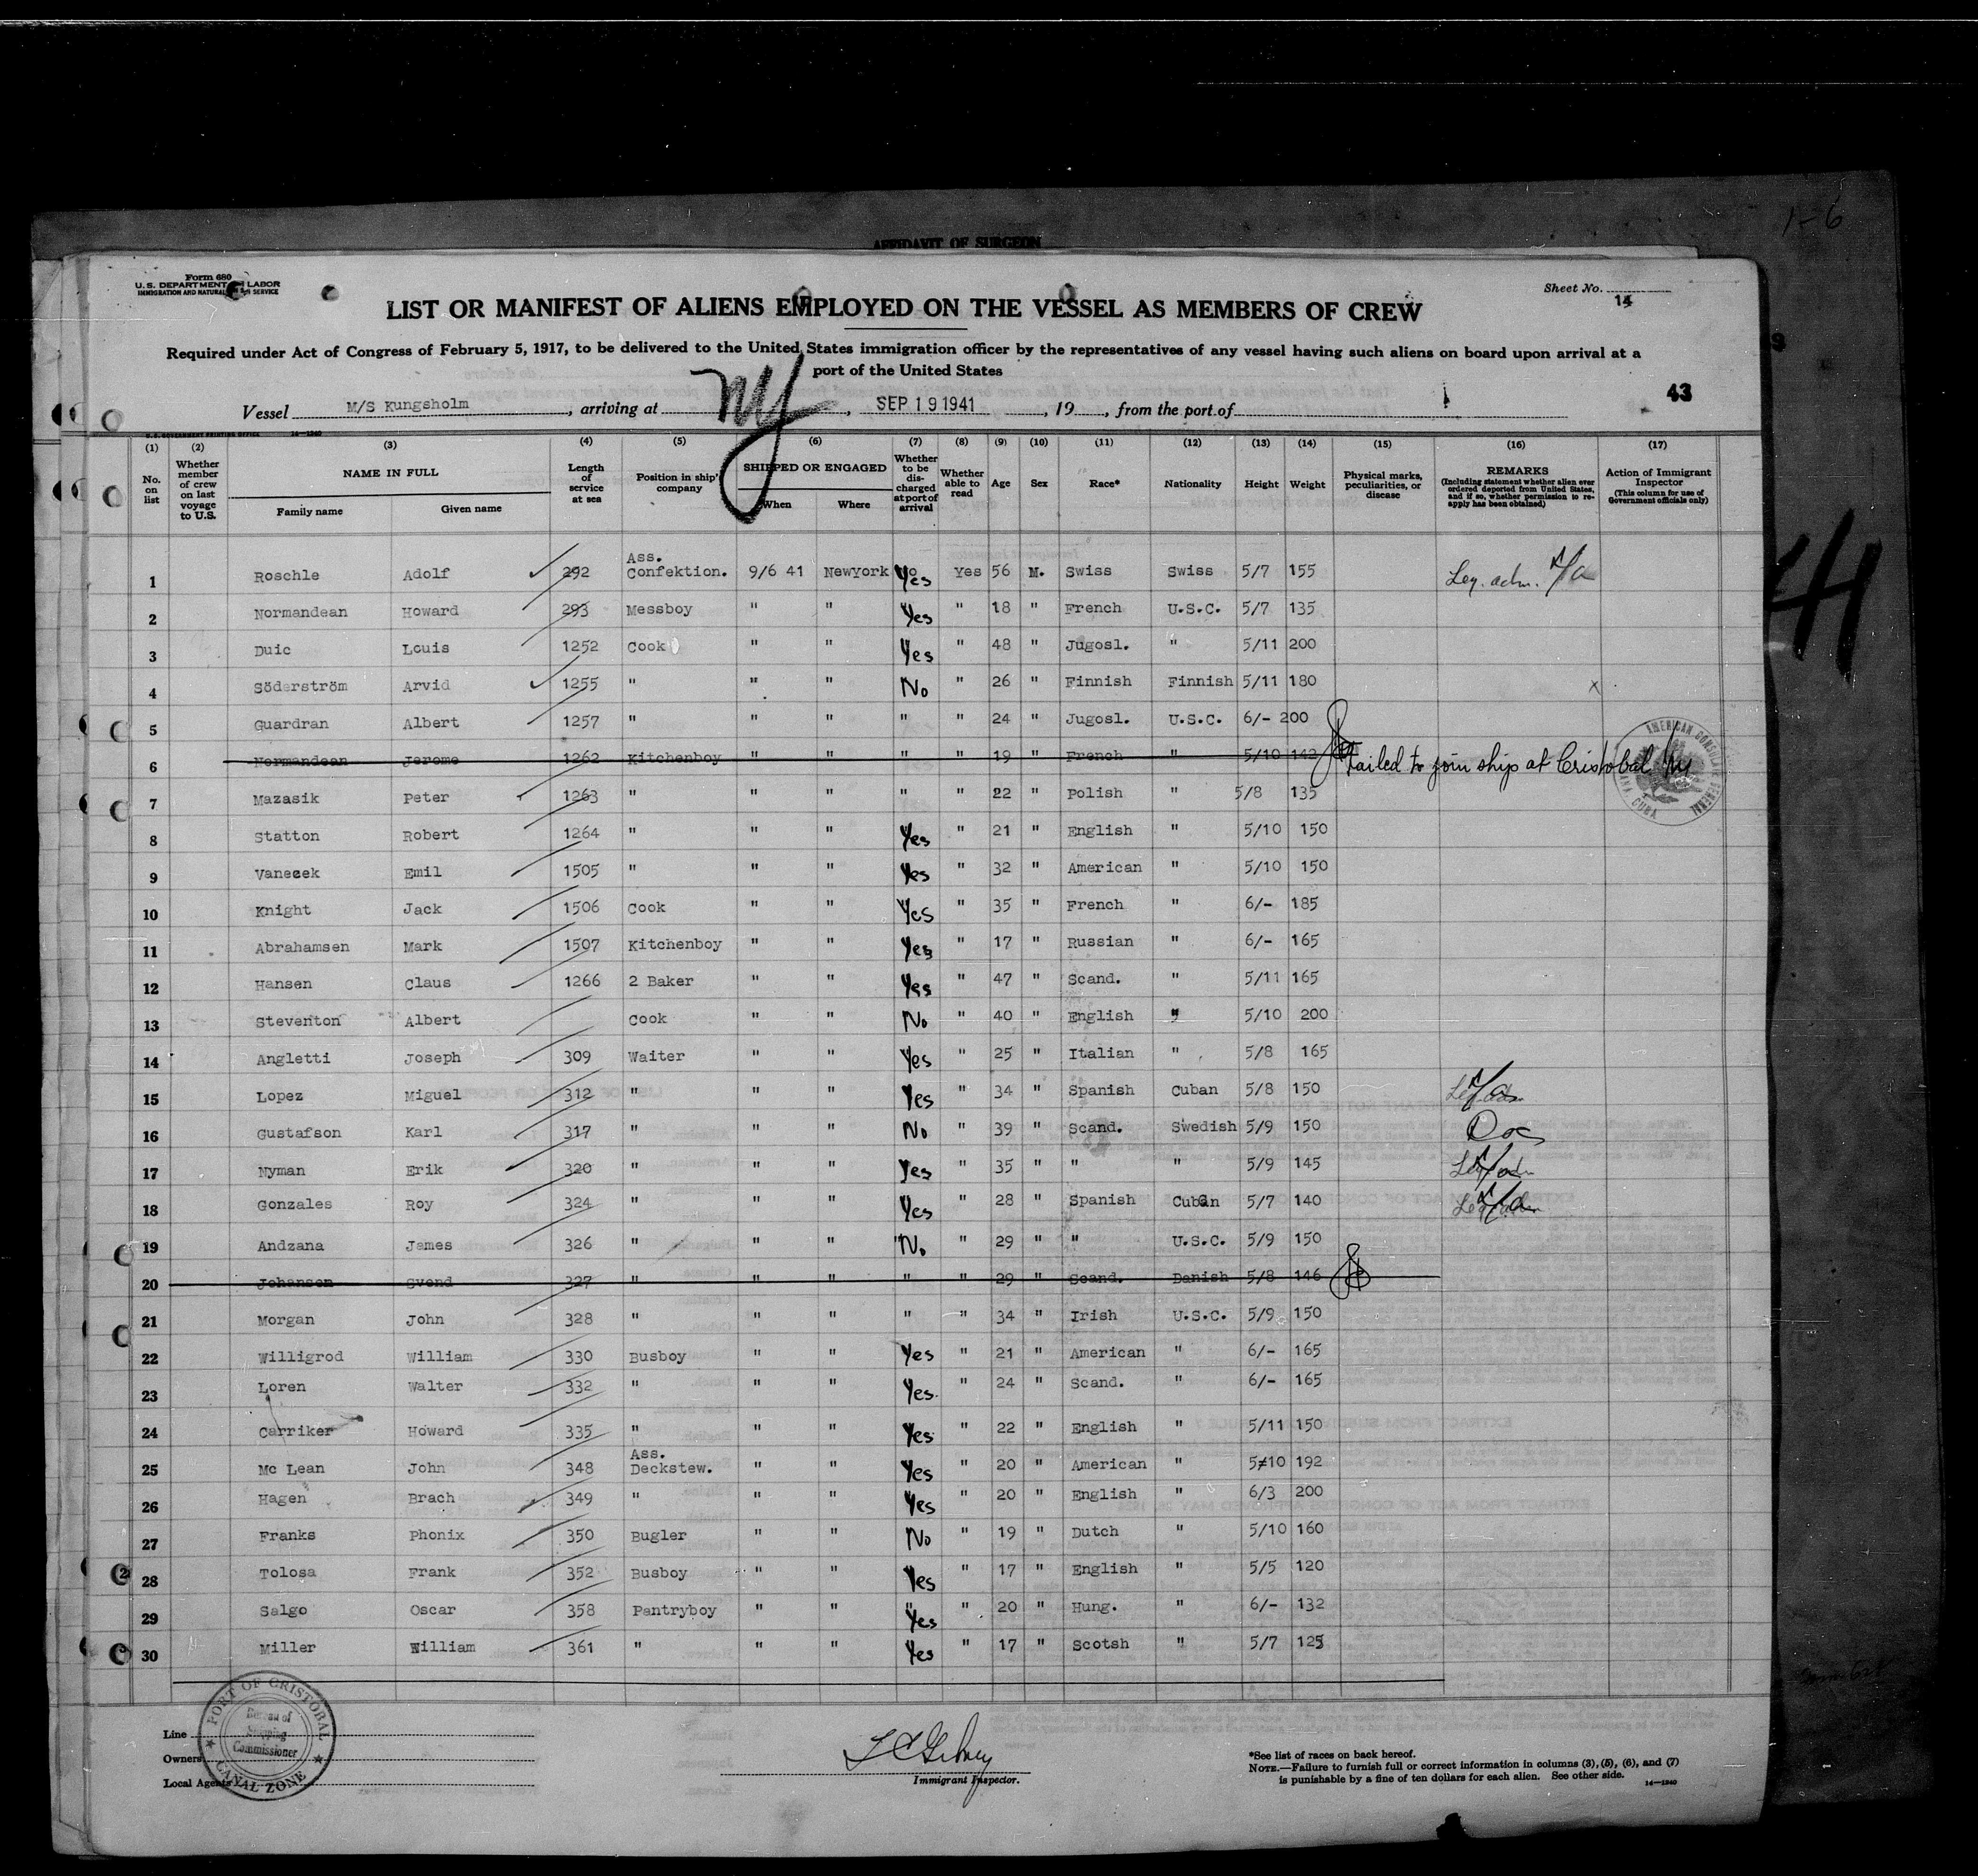 1-6
AFFIDAVIT OF SURGEON
Form 680
U. S. DEPARTMENT OF LABOR
IMMIGRATION AND NATURALIZATION SERVICE
Sheet No. 14
LIST OR MANIFEST OF ALIENS EMPLOYED ON THE VESSEL AS MEMBERS OF CREW
Required under Act of Congress of February 5, 1917, to be delivered to the United States immigration officer by the representatives of any vessel having such aliens on board upon arrival at a
port of the United States
43
Vessel M/S Kungsholm, arriving at NY, SEP 19 1941, 19, from the port of
U. S. GOVERNMENT PRINTING OFFICE 14—1240
(1) (2) (3) (4) (5) (6) (7) (8) (9) (10) (11) (12) (13) (14) (15) (16) (17)
No. on list Whether member of crew on last voyage to U.S. NAME IN FULL Family name Given name Length of service at sea Position in ship's company SHIPPED OR ENGAGED When Where Whether to be discharged at port of arrival Whether able to read Age Sex Race* Nationality Height Weight Physical marks, peculiarities, or disease REMARKS (Including statement whether alien ever ordered deported from United States, and if so, whether permission to reapply has been obtained) Action of Immigrant Inspector (This column for use of Government officials only)
1 Roschle Adolf 292 Ass. Confektion. 9/6 41 NewYork Yes Yes 56 M. Swiss Swiss 5/7 155 Leg. adm.
2 Normandean Howard 293 Messboy " " Yes " 18 " French U.S.C. 5/7 135
3 Duic Louis 1252 Cook " " Yes " 48 " Jugosl. " 5/11 200
4 Söderström Arvid 1255 " " " No " 26 " Finnish Finnish 5/11 180 x
5 Guardran Albert 1257 " " " " " 24 " Jugosl. U.S.C. 6/- 200
6 Normandean Jerome 1262 Kitchenboy " " " " 19 " French " 5/10 142 Failed to join ship at Cristobal
7 Mazasik Peter 1263 " " " " " 22 " Polish " 5/8 135
8 Statton Robert 1264 " " " Yes " 21 " English " 5/10 150
9 Vanecek Emil 1505 " " " Yes " 32 " American " 5/10 150
10 Knight Jack 1506 Cook " " Yes " 35 " French " 6/- 185
11 Abrahamsen Mark 1507 Kitchenboy " " Yes " 17 " Russian " 6/- 165
12 Hansen Claus 1266 2 Baker " " Yes " 47 " Scand. " 5/11 165
13 Steventon Albert Cook " " No " 40 " English " 5/10 200
14 Angletti Joseph 309 Waiter " " Yes " 25 " Italian " 5/8 165
15 Lopez Miguel 312 " " " Yes " 34 " Spanish Cuban 5/8 150
16 Gustafson Karl 317 " " " No " 39 " Scand. Swedish 5/9 150
17 Nyman Erik 320 " " " Yes " 35 " " " 5/9 145
18 Gonzales Roy 324 " " " Yes " 28 " Spanish Cuban 5/7 140
19 Andzana James 326 " " " No " 29 " " U.S.C. 5/9 150
20 Johansen Svend 327 " " " " " 29 " Scand. Danish 5/8 146
21 Morgan John 328 " " " " " 34 " Irish U.S.C. 5/9 150
22 Willigrod William 330 Busboy " " Yes " 21 " American " 6/- 165
23 Loren Walter 332 " " " Yes. " 24 " Scand. " 6/- 165
24 Carriker Howard 335 " " " Yes " 22 " English " 5/11 150
25 Mc Lean John 348 Ass. Deckstew. " " Yes " 20 " American " 5/10 192
26 Hagen Brach 349 " " " Yes " 20 " English " 6/3 200
27 Franks Phonix 350 Bugler " " No " 19 " Dutch " 5/10 160
28 Tolosa Frank 352 Busboy " " Yes " 17 " English " 5/5 120
29 Salgo Oscar 358 Pantryboy " " Yes " 20 " Hung. " 6/- 132
30 Miller William 361 " " " Yes " 17 " Scotsh " 5/7 125
AMERICAN CONSULATE GENERAL
CUBA
PORT OF CRISTOBAL
Bureau of
Shipping
Commissioner
CANAL ZONE
Line
Owners
Local Agents
Immigrant Inspector.
*See list of races on back hereof.
NOTE.—Failure to furnish full or correct information in columns (3), (5), (6), and (7)
is punishable by a fine of ten dollars for each alien. See other side.
14—1240